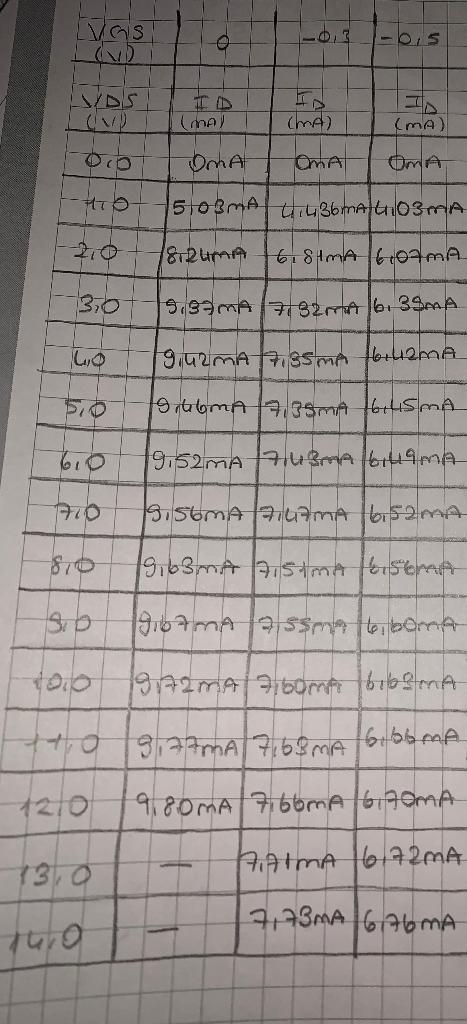 VGS (V) 0 -0,3 -0,5
VDS (V) ID (mA) ID (mA) ID (mA)
0,0 0mA 0mA 0mA
1,0 5,03mA 4,436mA 4,03mA
2,0 8,24mA 6,81mA 6,07mA
3,0 9,37mA 7,32mA 6,39mA
4,0 9,42mA 7,35mA 6,42mA
5,0 9,46mA 7,39mA 6,45mA
6,0 9,52mA 7,43mA 6,49mA
7,0 9,56mA 7,47mA 6,52mA
8,0 9,63mA 7,51mA 6,56mA
9,0 9,67mA 7,55mA 6,60mA
10,0 9,72mA 7,60mA 6,63mA
11,0 9,77mA 7,63mA 6,66mA
12,0 9,80mA 7,66mA 6,70mA
13,0 — 7,71mA 6,72mA
14,0 — 7,73mA 6,76mA